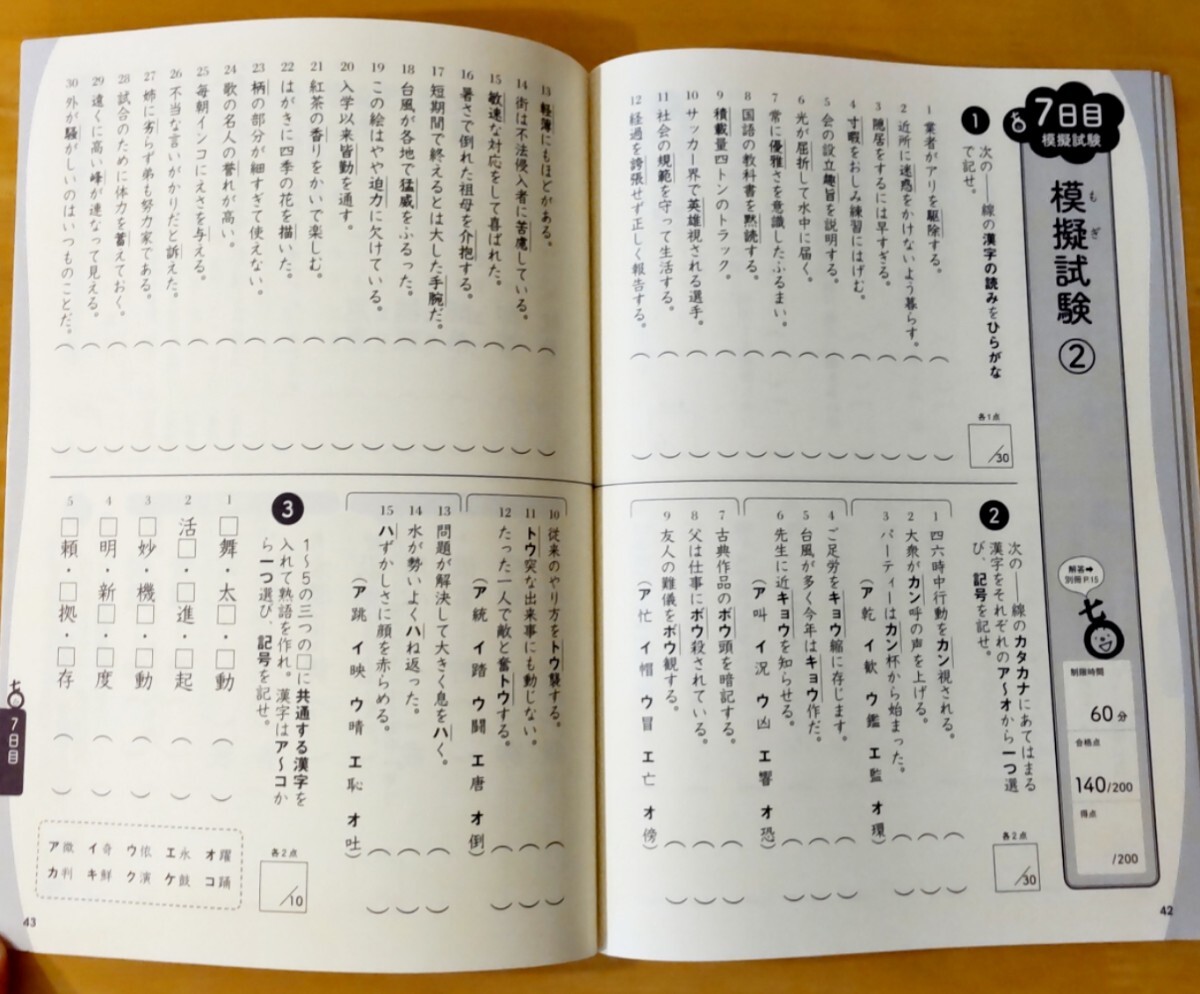 7日目
模擬試験
模擬試験②
もぎ
解答➡
別冊P.15
制限時間
60分
合格点
140/200
得点
/200
1
次の――線の漢字の読みをひらがな
で記せ。
各1点
/30
1 業者がアリを駆除する。
2 近所に迷惑をかけないよう暮らす。
3 隠居をするには早すぎる。
4 寸暇をおしみ練習にはげむ。
5 会の設立趣旨を説明する。
6 光が屈折して水中に届く。
7 常に優雅さを意識したふるまい。
8 国語の教科書を黙読する。
9 積載量四トンのトラック。
10 サッカー界で英雄視される選手。
11 社会の規範を守って生活する。
12 経過を誇張せず正しく報告する。
13 軽薄にもほどがある。
14 街は不法侵入者に苦慮している。
15 敏速な対応をして喜ばれた。
16 暑さで倒れた祖母を介抱する。
17 短期間で終えるとは大した手腕だ。
18 台風が各地で猛威をふるった。
19 この絵はやや迫力に欠けている。
20 入学以来皆勤を通す。
21 紅茶の香りをかいで楽しむ。
22 はがきに四季の花を描いた。
23 柄の部分が細すぎて使えない。
24 歌の名人の誉れが高い。
25 毎朝インコにえさを与える。
26 不当な言いがかりだと訴えた。
27 姉に劣らず弟も努力家である。
28 試合のために体力を蓄えておく。
29 遠くに高い峰が連なって見える。
30 外が騒がしいのはいつものことだ。
2
次の――線のカタカナにあてはまる
漢字をそれぞれのア～オから一つ選
び、記号を記せ。
各2点
/30
1 四六時中行動をカン視される。
2 大衆がカン呼の声を上げる。
3 パーティーはカン杯から始まった。
(ア 乾 イ 歓 ウ 鑑 エ 監 オ 環)
4 ご足労をキョウ縮に存じます。
5 台風が多く今年はキョウ作だ。
6 先生に近キョウを知らせる。
(ア 叫 イ 況 ウ 凶 エ 響 オ 恐)
7 古典作品のボウ頭を暗記する。
8 父は仕事にボウ殺されている。
9 友人の難儀をボウ観する。
(ア 忙 イ 帽 ウ 冒 エ 亡 オ 傍)
10 従来のやり方をトウ襲する。
11 トウ突な出来事にも動じない。
12 たった一人で敵と奮トウする。
(ア 統 イ 踏 ウ 闘 エ 唐 オ 倒)
13 問題が解決して大きく息をハく。
14 水が勢いよくハね返った。
15 ハずかしさに顔を赤らめる。
(ア 跳 イ 映 ウ 晴 エ 恥 オ 吐)
3
1～5の三つの□に共通する漢字を
入れて熟語を作れ。漢字はア～コか
ら一つ選び、記号を記せ。
各2点
/10
1 □舞・太□・□動
2 活□・□進・□起
3 □妙・機□・□動
4 □明・新□・□度
5 □頼・□拠・□存
ア 微 イ 奇 ウ 依 エ 永 オ 躍
カ 判 キ 鮮 ク 演 ケ 鼓 コ 踊
七
7日目
42
43